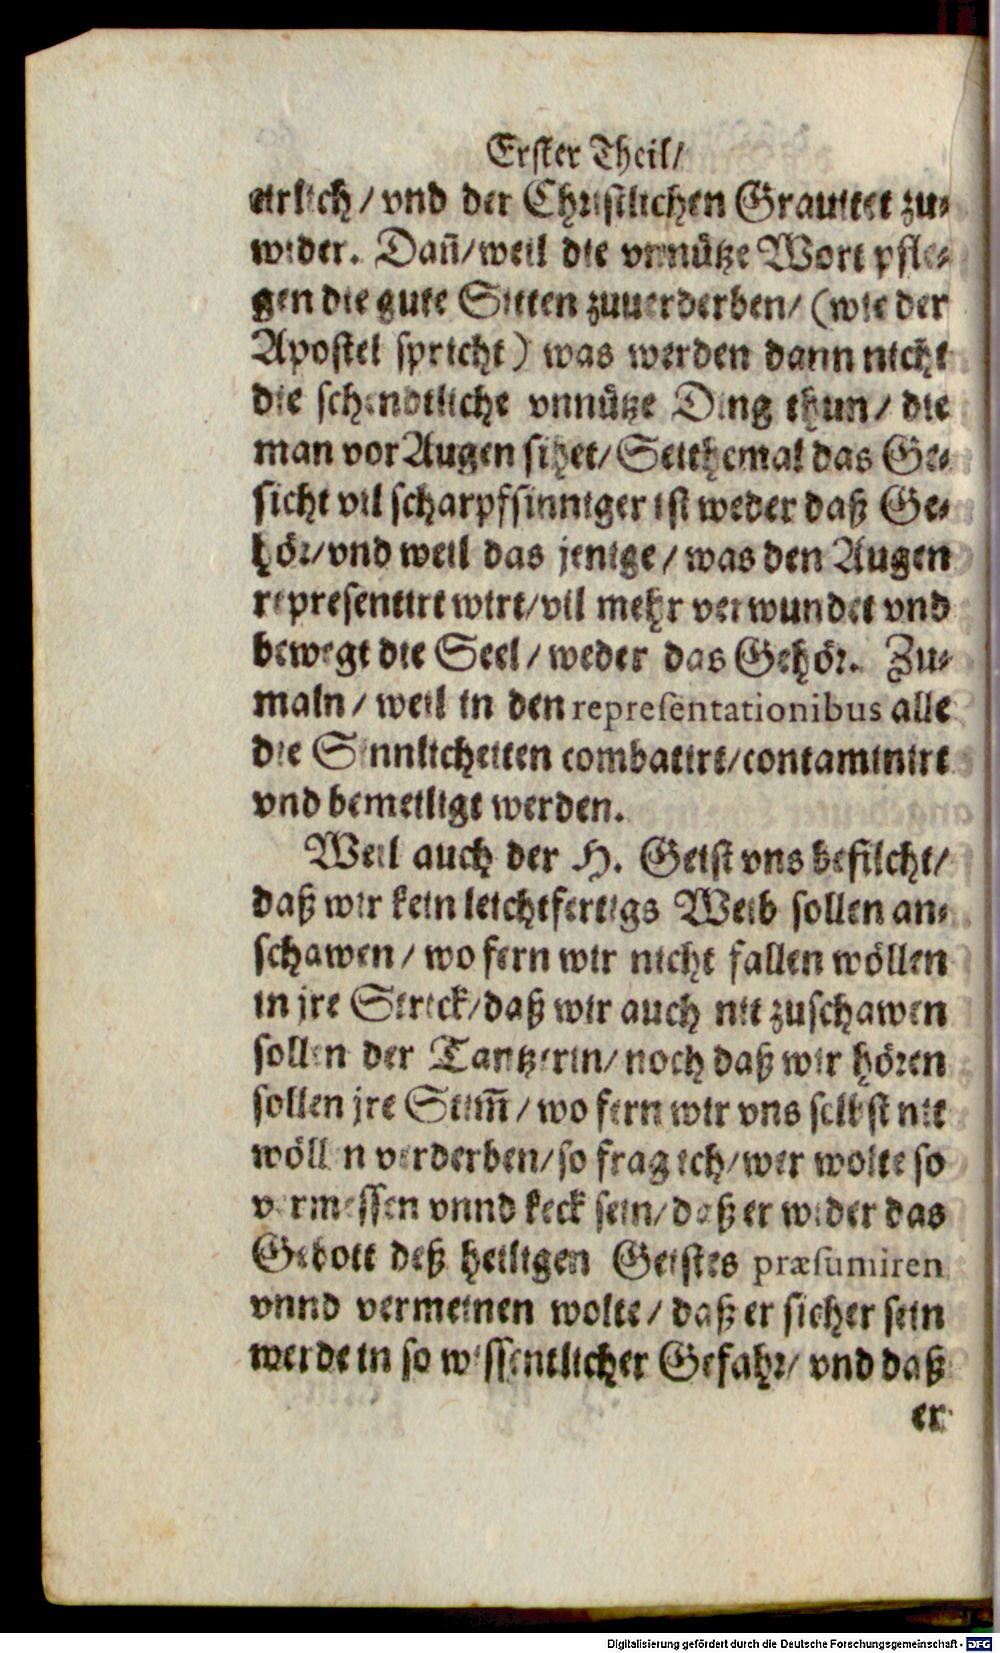 Erster Theil/
rirlich/ vnd der Christlichen Grauitet zu⸗
wider. Dañ/ weil die vnnütze Wort pfle⸗
gen die gute Sitten zuuerderben/ (wie der
Apostel spricht) was werden dann nicht
die schendtliche vnnütze Ding thun/ die
man vor Augen sihet/ Seithemal das Ge⸗
sicht vil scharpfsinniger ist weder daß Ge⸗
hör/ vnd weil das jenige/ was den Augen
representirt wirt/ vil mehr verwundet vnd
bewegt die Seel/ weder das Gehör. Zu⸗
maln/ weil in den repreſentationibus alle
die Sinnlicheiten combatirt/ contaminirt
vnd bemeiligt werden.
Weil auch der H. Geist vns befilcht/
daß wir kein leichtfertigs Weib sollen an⸗
schawen/ wo fern wir nicht fallen wöllen
in jre Strick/ daß wir auch nit zuschawen
sollen der Tantzerin/ noch daß wir hören
sollen jre Stim̃/ wo fern wir vns selbst nit
wöllen verderben/ so frag ich/ wer wolte so
vermessen vnnd keck sein/ daß er wider das
Gebott deß heiligen Geistes præſumiren
vnnd vermeinen wolte/ daß er sicher sein
werde in so wissentlicher Gefahr/ vnd daß
er
Digitalisierung gefördert durch die Deutsche Forschungsgemeinschaft - DFG